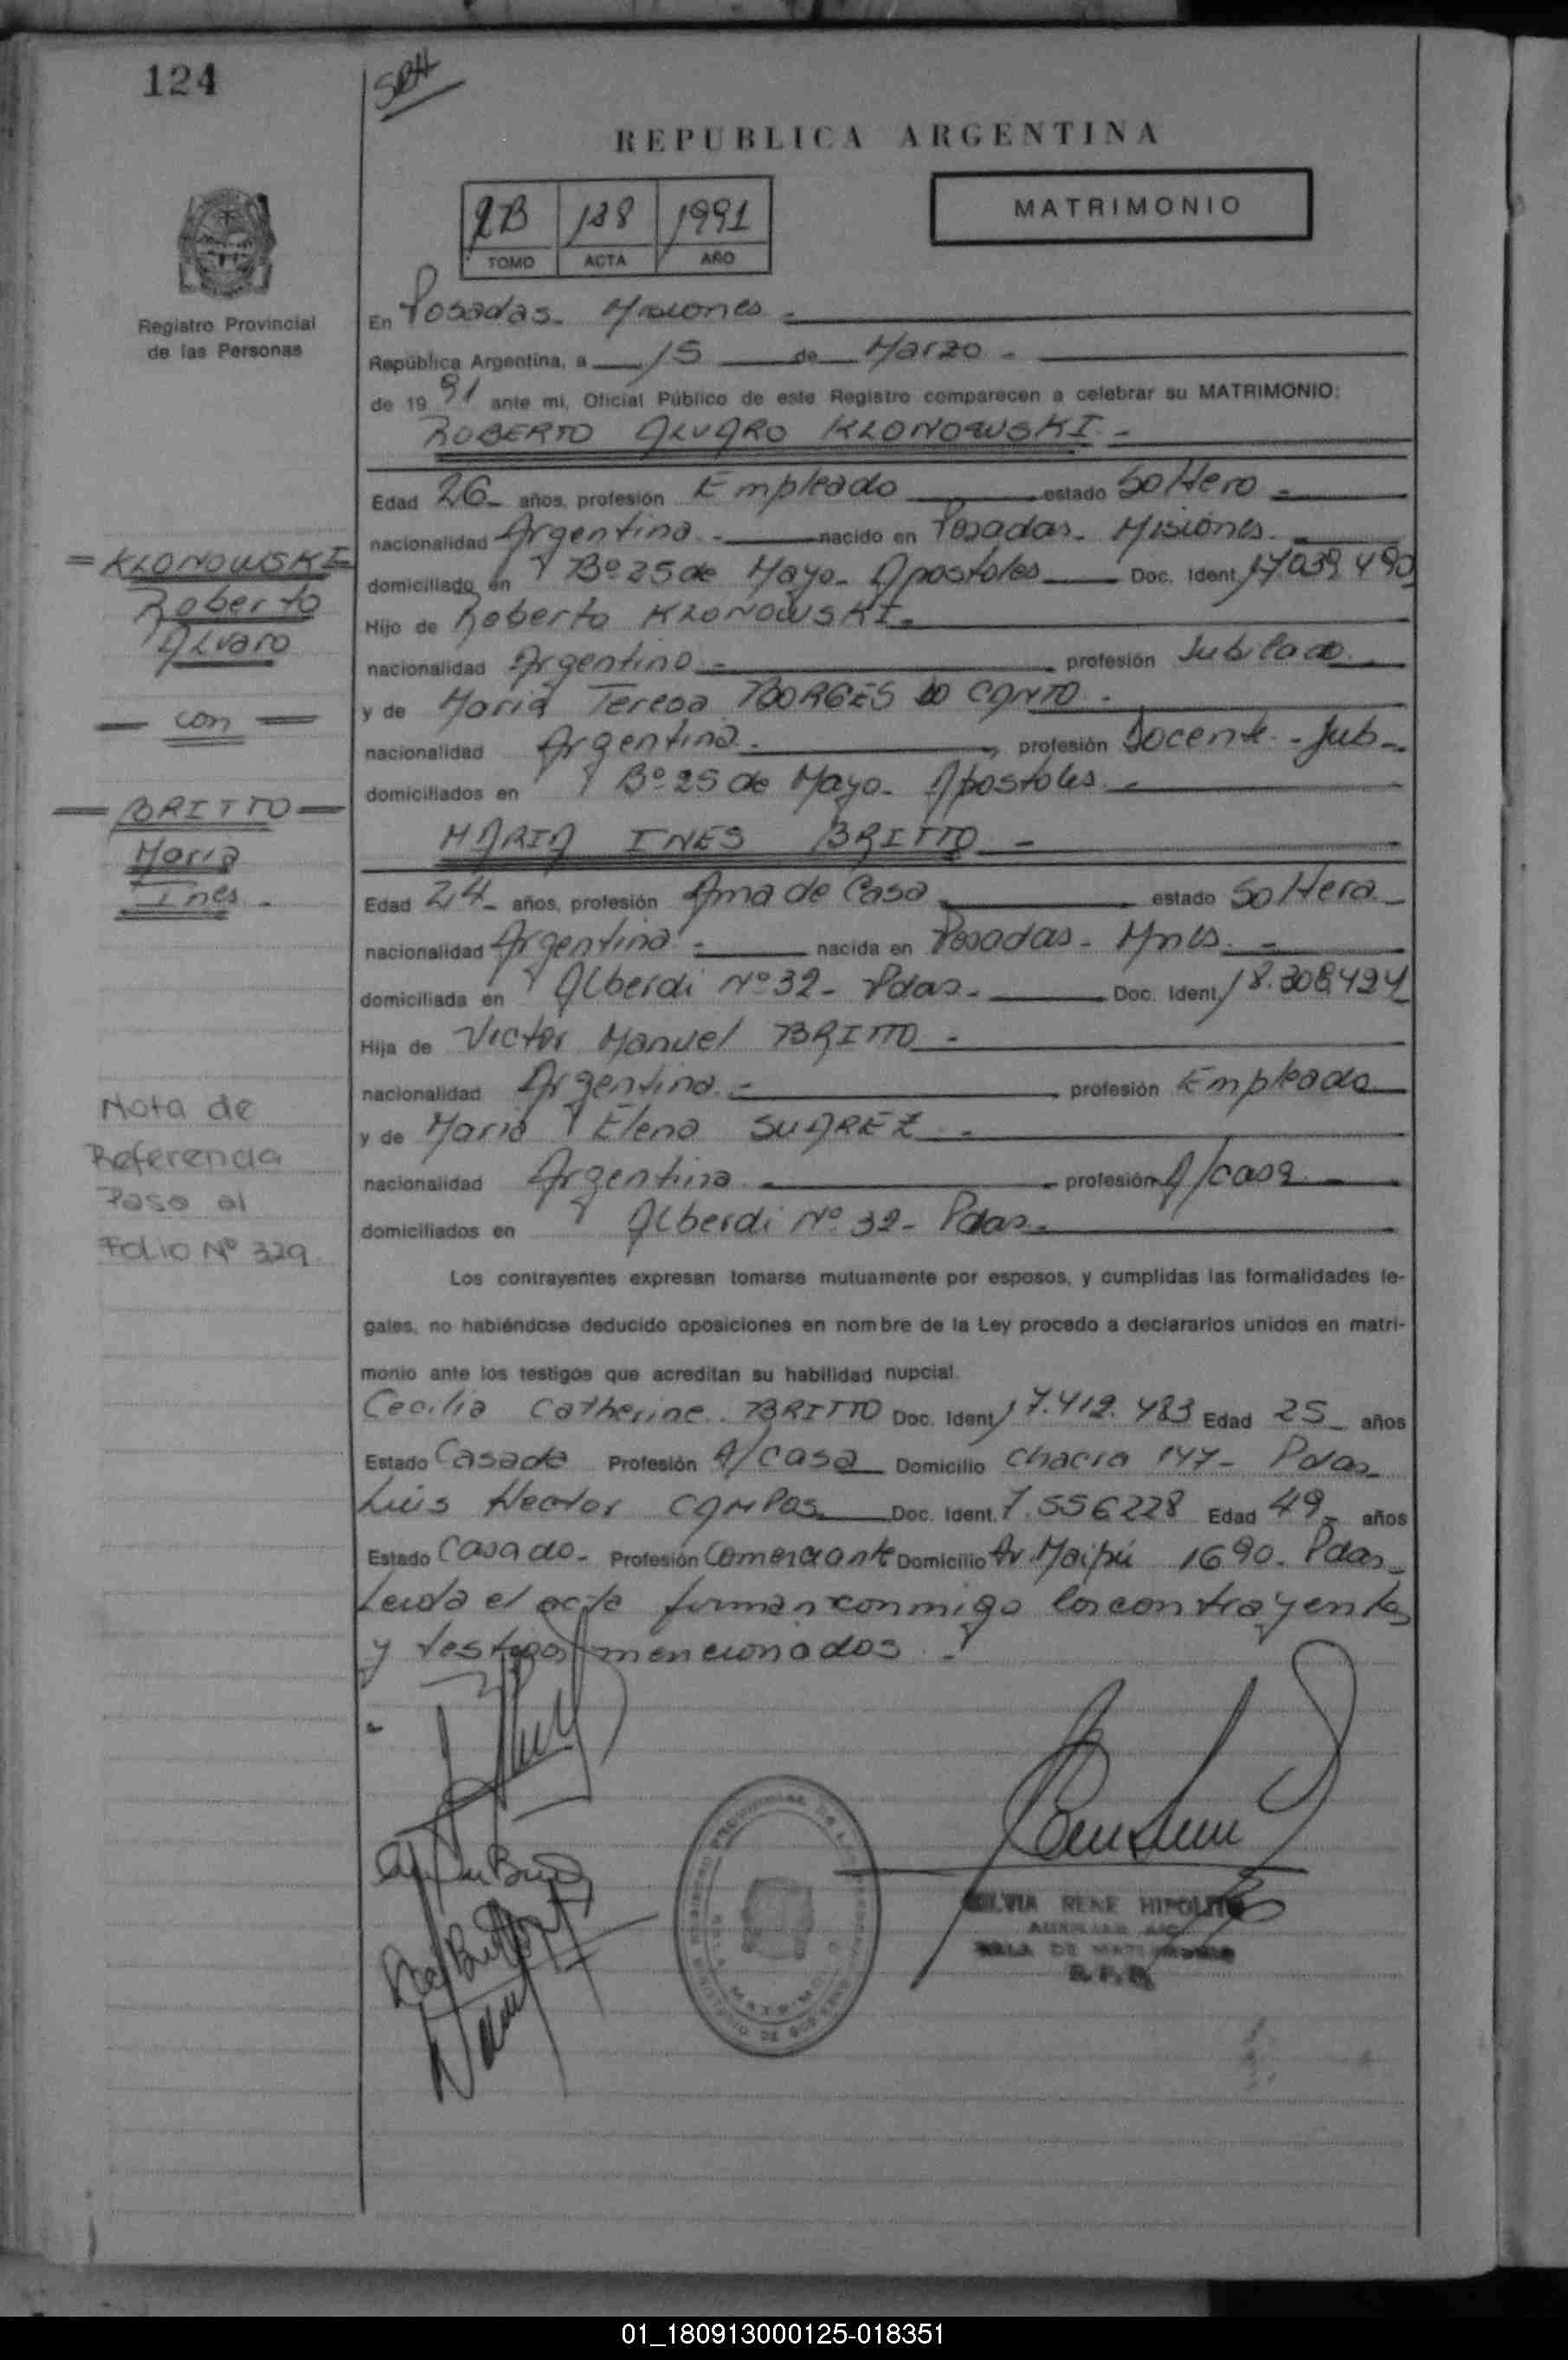 124
SRH
REPUBLICA ARGENTINA
2B 128 1991
TOMO ACTA AÑO
MATRIMONIO
Registro Provincial
de las Personas
En Posadas - Misiones -
República Argentina, a 15 de Marzo -
de 19 91 ante mí, Oficial Público de este Registro comparecen a celebrar su MATRIMONIO:
ROBERTO ALVARO KLONOWSKI -
Edad 26 - años, profesión Empleado estado Soltero -
nacionalidad Argentina - nacido en Posadas - Misiones.
domiciliado en Bº 25 de Mayo - Apostoles Doc. Ident. 17.039.490
Hijo de Roberto KLONOWSKI -
nacionalidad Argentino - profesión Jubilado
y de Maria Teresa BORGES DO CANTO -
nacionalidad Argentina - profesión Docente - Jub -
domiciliados en Bº 25 de Mayo - Apostoles -
MARIA INES BRITTO -
Edad 24 - años, profesión Ama de Casa - estado Soltera -
nacionalidad Argentina - nacida en Posadas - Mnes. -
domiciliada en Alberdi Nº 32 - Pdas. - Doc. Ident. 18.308.424
Hija de Victor Manuel BRITTO -
nacionalidad Argentino - profesión Empleado
y de Maria Elena SUAREZ -
nacionalidad Argentina - profesión A/casa -
domiciliados en Alberdi Nº 32 - Pdas -
Los contrayentes expresan tomarse mutuamente por esposos, y cumplidas las formalidades le-
gales, no habiéndose deducido oposiciones en nombre de la Ley procedo a declararlos unidos en matri-
monio ante los testigos que acreditan su habilidad nupcial.
Cecilia Catherine BRITTO Doc. Ident. 17.412.483 Edad 25 - años
Estado Casada Profesión A/casa Domicilio Chacra 147 - Pdas -
Luis Hector CAMPOS Doc. Ident. 7.556228 Edad 49 - años
Estado Casado - Profesión Comerciante Domicilio Av. Maipú 1690 - Pdas -
Leida el acta firman conmigo los contrayentes
y testigos mencionados -
= KLONOWSKI =
Roberto
Alvaro
— con —
— BRITTO —
Maria
Ines -
Nota de
Referencia
Paso al
Folio Nº 329.
SILVIA RENE HIPOLITO
SALA DE MATRIMONIO
R. P. P.
01_180913000125-018351